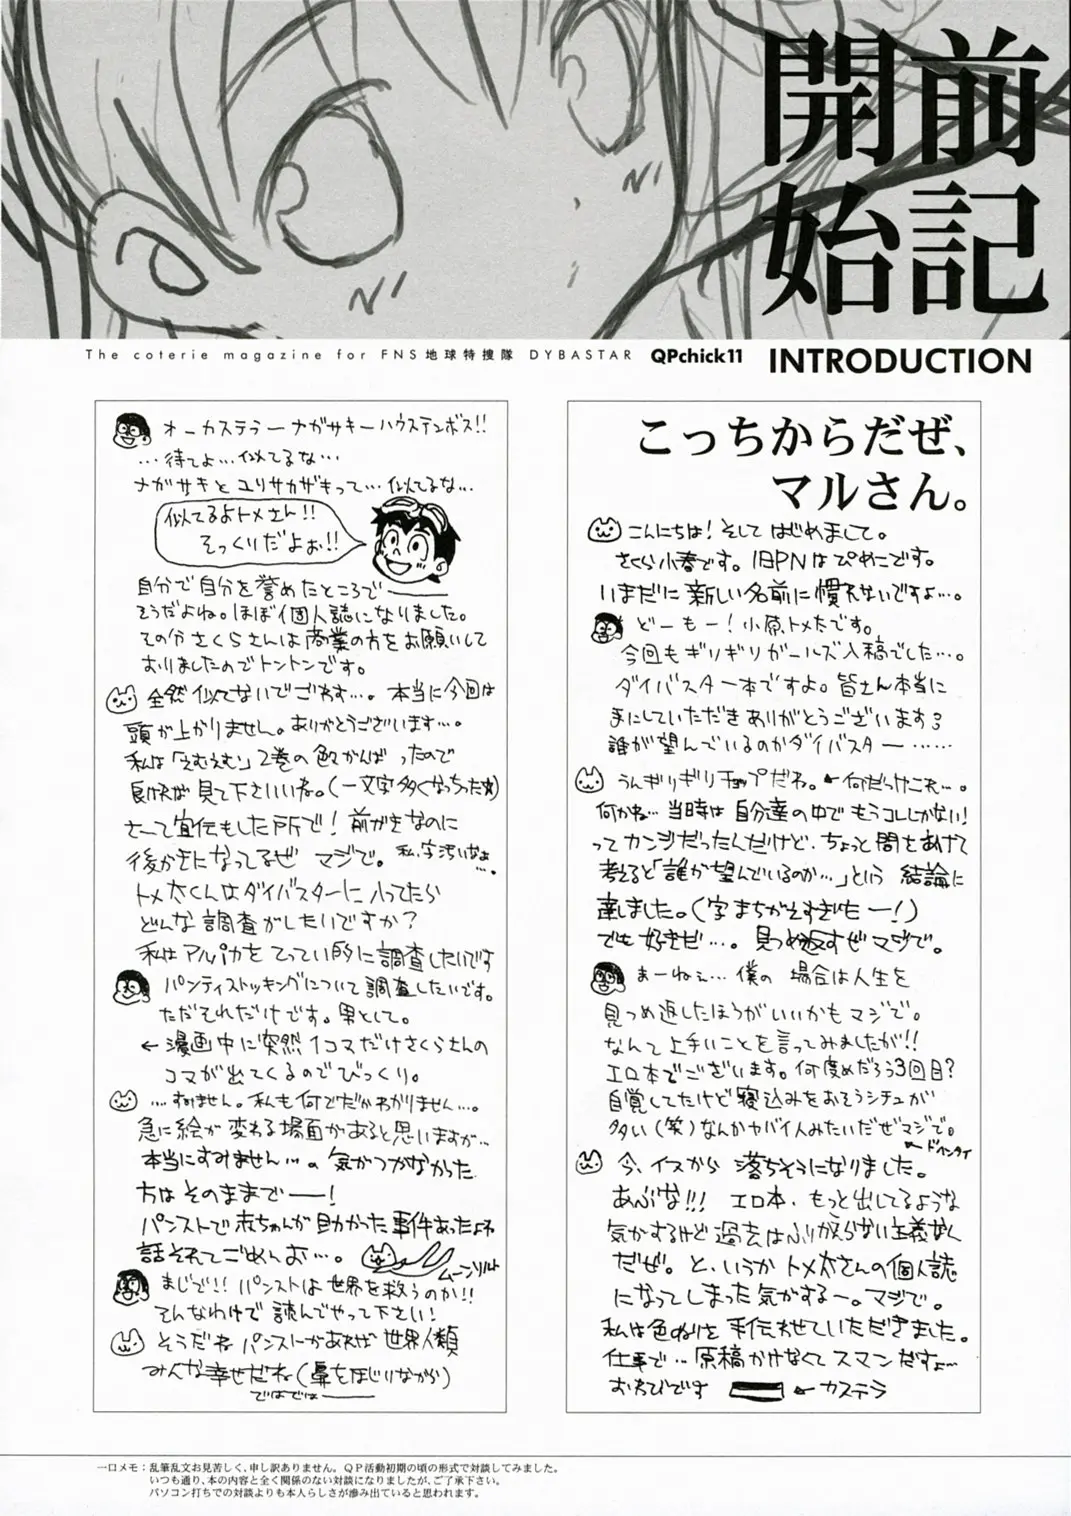 前記
開始
The coterie magazine for FNS地球特捜隊 DYBASTAR QPchick11 INTRODUCTION
こっちからだぜ、
マルさん。
こんにちは!そして はじめまして。
さくら小春です。旧PNはぴめこです。
いまだに新しい名前に慣れないですょ…。
どーもー!小原トメ太です。
今回もギリギリガールズ入稿でした…。
ダイバスター本ですよ。皆さん本当に
手にしていただきありがとうございます
誰が望んでいるのかダイバスター……
うんギリギリチョップだね。←何だっけこれ…。
何かね…当時は自分達の中でもうコレしかない!
ってカンジだったんだけど、ちょっと間をあけて
考えると「誰が望んでいるのか…」という 結論に
達しました。(字まちがえすぎたー!)
でも好きだ…。見つめ返すぜマジで。
まーねぇ…僕の 場合は人生を
見つめ返したほうがいいかもマジで。
なんて上手いことを言ってみましたが!!
エロ本でございます。何度めだろう3回目?
自覚してたけど寝込みをおそうシチュが
多い(笑)なんかヤバイ人みたいだぜマジで。
←ドヘンタイ
今、イスから 落ちそうになりました。
あぶな!!! エロ本、もっと出してるような
気がするけど過去はふりかえらない主義なん
だぜ。と、いうかトメ太さんの個人誌
になってしまった気がするー。マジで。
私は色ぬりを手伝わせていただきました。
仕事で…原稿かけなくてスマンだすょ…
おわびです ←カステラ
オーカステラーナガサキーハウステンボス!!
…待てよ…似てるな…
ナガサキとユリサカザキって…似てるな…
似てるよトメさん!!
そっくりだよぉ!!
自分で自分を誉めたところで――
そうだよね。ほぼ個人誌になりました。
その分さくらさんは商業の方をお願いして
おりましたのでトントンです。
全然似てないでごわす…。本当に今回は
頭が上がりません。ありがとうございます…。
私は「えむえむ」2巻の色かんばったので
良ければ見て下さいいね。(一文字多くなっちった)
さーて宣伝もした所で!前がきなのに
後がきになってるぜ マジで。私、字汚いなょ…。
トメ太くんはダイバスターに入ってたら
どんな調査がしたいですか?
私はアルパカをてってい的に調査したいです
パンティストッキングについて調査したいです。
ただそれだけです。男として。
←漫画中に突然1コマだけさくらさんの
コマが出てくるのでびっくり。
…すみません。私も何でだかわかりません…。
急に絵が変わる場面があると思いますが…
本当にすみません…。気がつかなかった
方はそのままで――!
パンストで赤ちゃんが助かった事件あったよね
話それてごめんお…。
ムーンソルト
まじで!!パンストは世界を救うのか!!
そんなわけで読んでやって下さい!
そうだね パンストがあれば世界人類
みんな幸せだね(鼻をほじりながら)
ではでは――
一口メモ:乱筆乱文お見苦しく、申し訳ありません。QP活動初期の頃の形式で対談してみました。
いつも通り、本の内容と全く関係のない対談になりましたが、ご了承下さい。
パソコン打ちでの対談よりも本人らしさが滲み出ていると思われます。